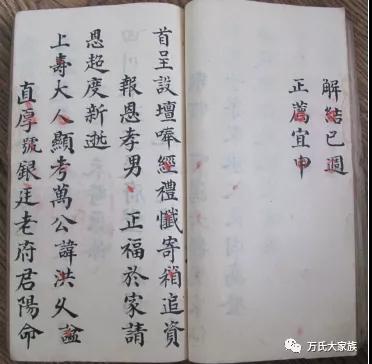 解結已週
正薦宜申
首呈設壇啤經禮懺寄箱追資
報恩孝男正福於家請
恩超度新逝
上壽大人顯考萬公諱洪攵諡
直厚號銀廷老府君陽命
万氏大家族